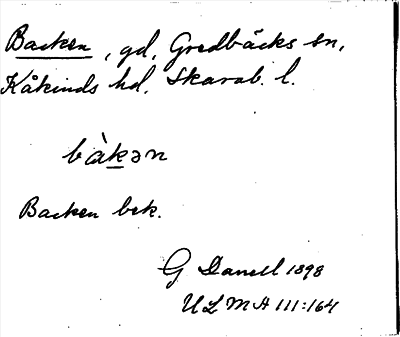 Backen, gd, Gredbäcks sn,
Kåkinds hd, Skarab. l.
bàkən
Backen bek.
G Danell 1898
ULMA 111:164